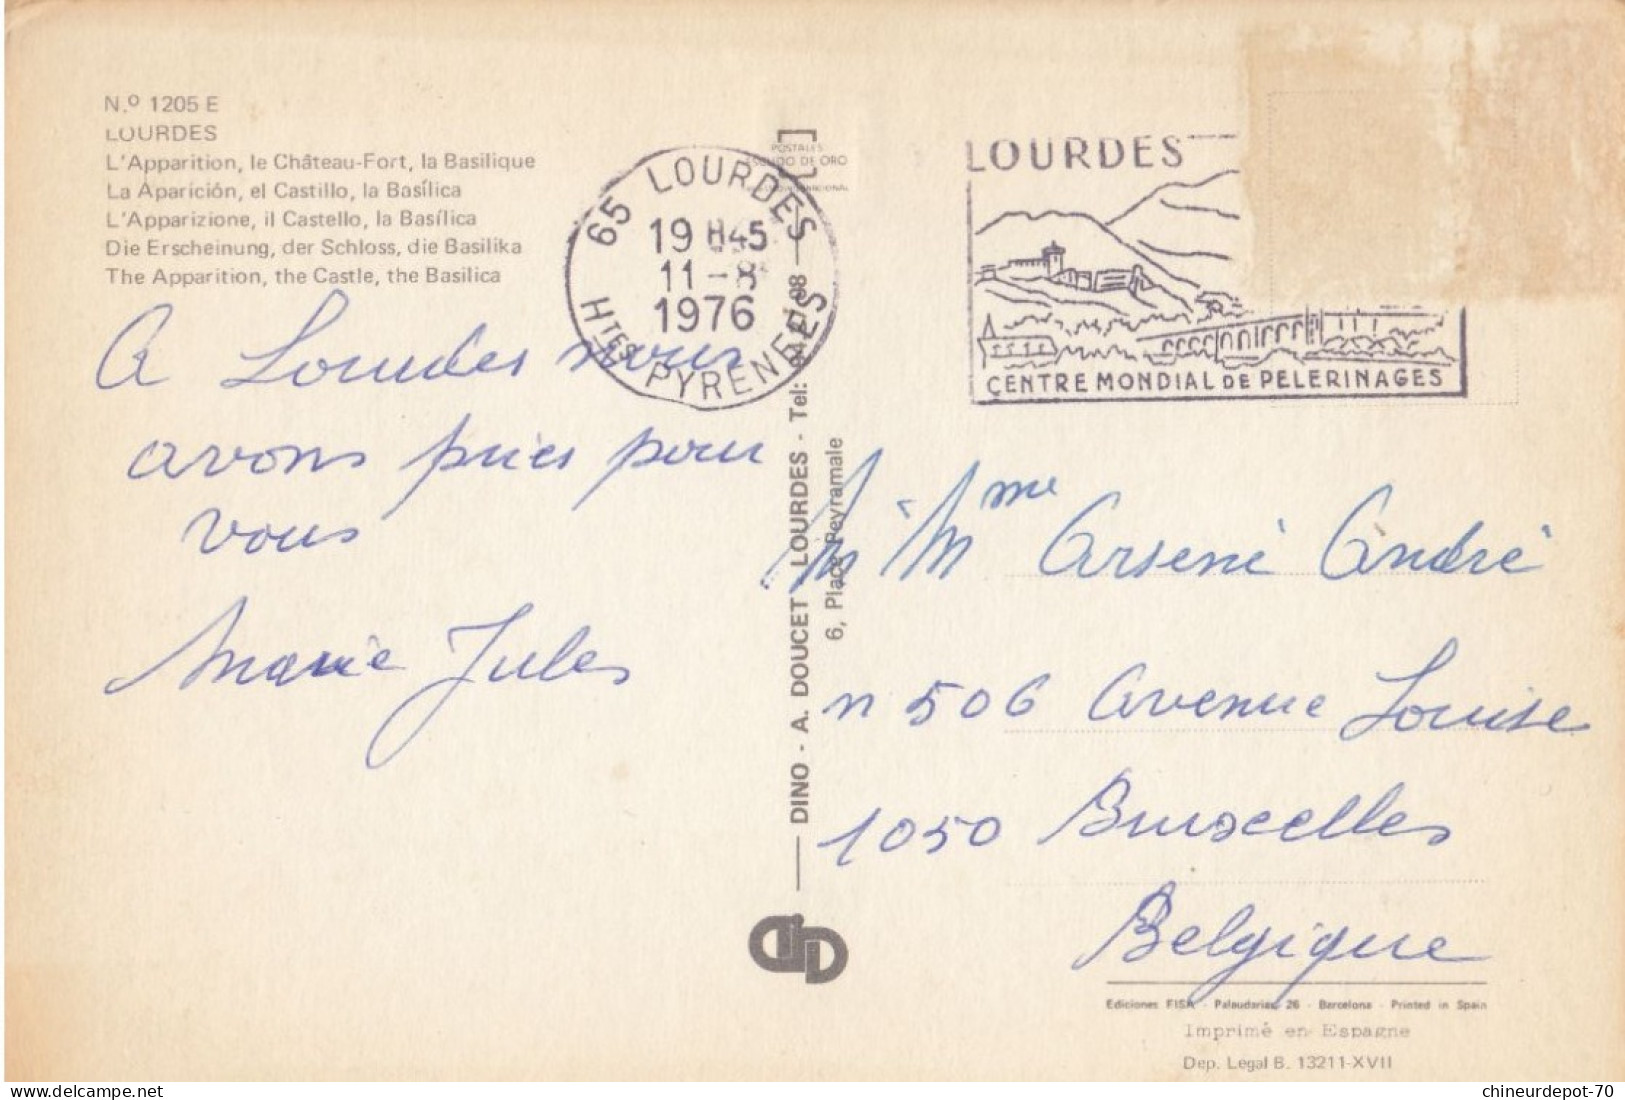 N.º 1205 E
LOURDES
L'Apparition, le Château-Fort, la Basilique
La Aparición, el Castillo, la Basílica
L'Apparizione, il Castello, la Basílica
Die Erscheinung, der Schloss, die Basilika
The Apparition, the Castle, the Basilica
A Lourdes nous
avons priés pour
vous
Marie Jules
65 LOURDES
19 H45
11-8
1976
HTES PYRENEES
POSTALES
ESCUDO DE ORO
DINO - A. DOUCET LOURDES - Tel:
6, Place Peyramale
LOURDES
CENTRE MONDIAL DE PELERINAGES
M Mme Arsené André
n 506 Avenue Louise
1050 Bruxelles
Belgique
Ediciones FISA - Palaudarias, 26 - Barcelona - Printed in Spain
Imprimé en Espagne
Dep. Legal B. 13211-XVII
chineurdepot-70